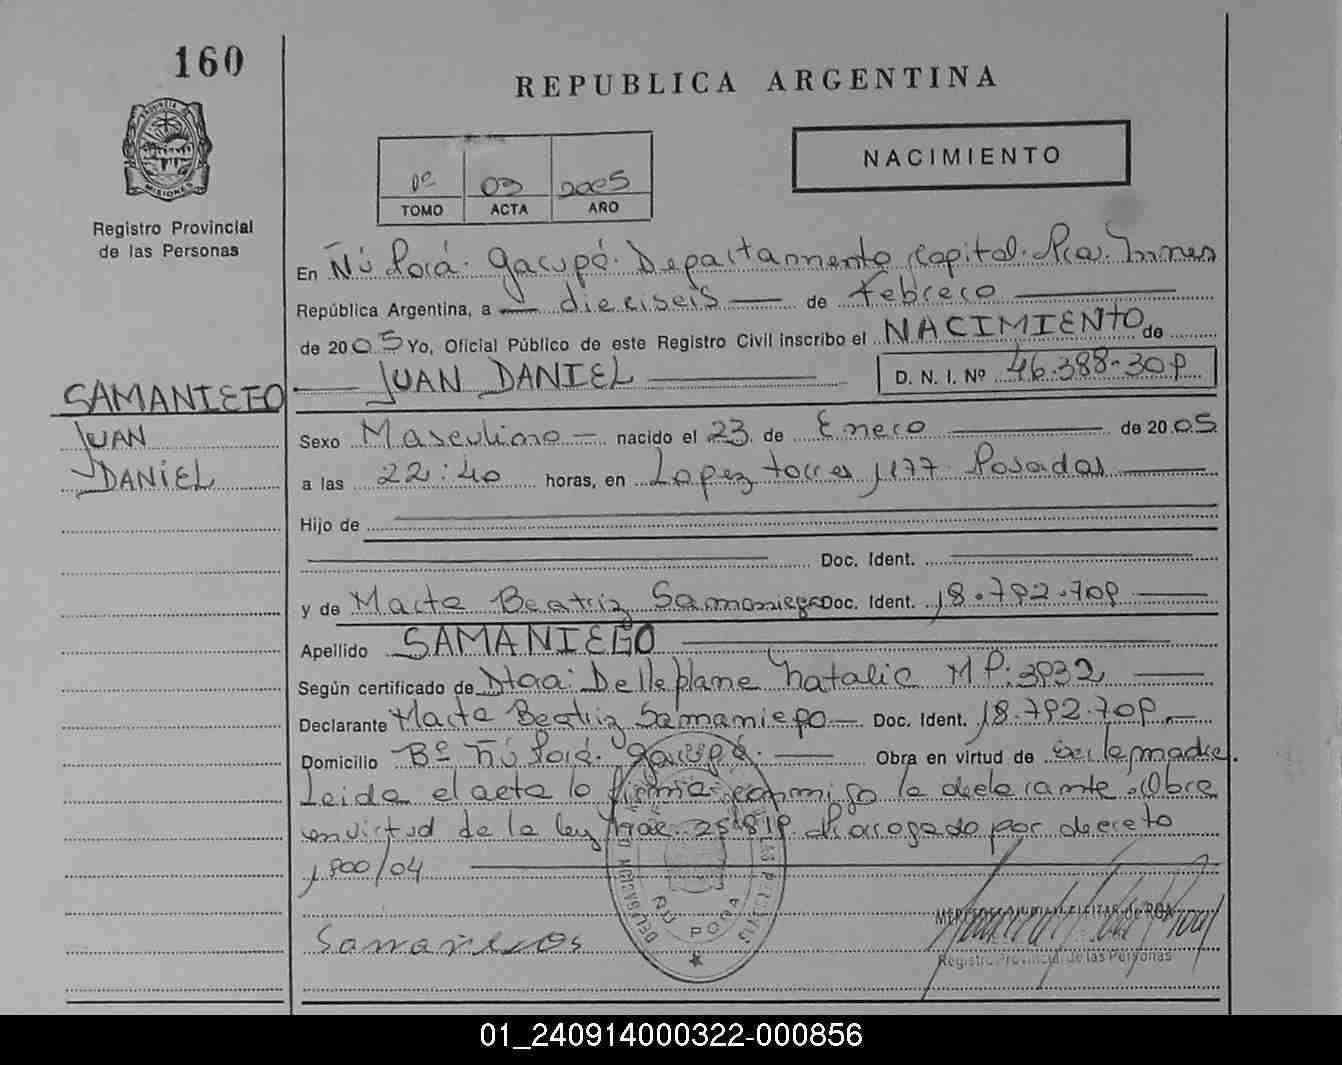 160
REPUBLICA ARGENTINA
NACIMIENTO
1º 03 2005
TOMO ACTA AÑO
PROVINCIA DE MISIONES
Registro Provincial
de las Personas
En Ñú Porá. Garupá. Departamento Capital. Pcia. Mnes
República Argentina, a dieciseis de Febrero
de 2005 Yo, Oficial Público de este Registro Civil inscribo el NACIMIENTO de
JUAN DANIEL D. N. I. Nº 46.388.309
SAMANIEGO
JUAN
DANIEL
Sexo Masculino nacido el 23 de Enero de 2005
a las 22:40 horas, en Lopez torres 1177 Posadas
Hijo de
Doc. Ident.
y de Marta Beatriz Samaniego Doc. Ident. 18.792.709
Apellido SAMANIEGO
Según certificado de Dtra: Delleplane Natalia M P: 3932
Declarante Marta Beatriz Samaniego Doc. Ident. 18.792.709
Domicilio Bº Ñú Porá. Garupá. Obra en virtud de ser la madre.
Leida el acta la firma conmigo la declarante. Obra
en virtud de la ley Nac. 25.819 Prorrogado por decreto
1900/04
ÑU PORA
MERCEDES DE ROA
Registro Provincial de las Personas
01_240914000322-000856